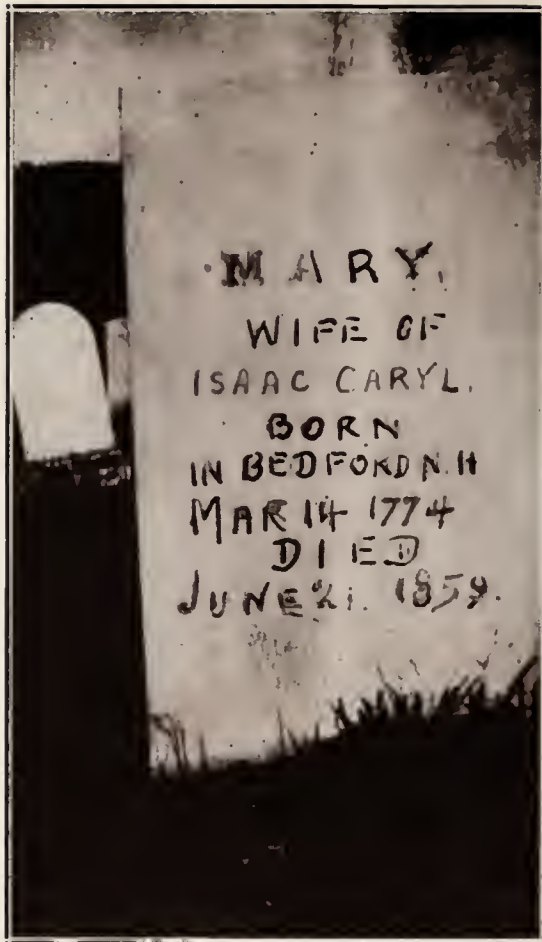 MARY.
WIFE OF
ISAAC CARYL.
BORN
IN BEDFORD N.H
MAR 14 1774
DIED
JUNE 21. 1859.